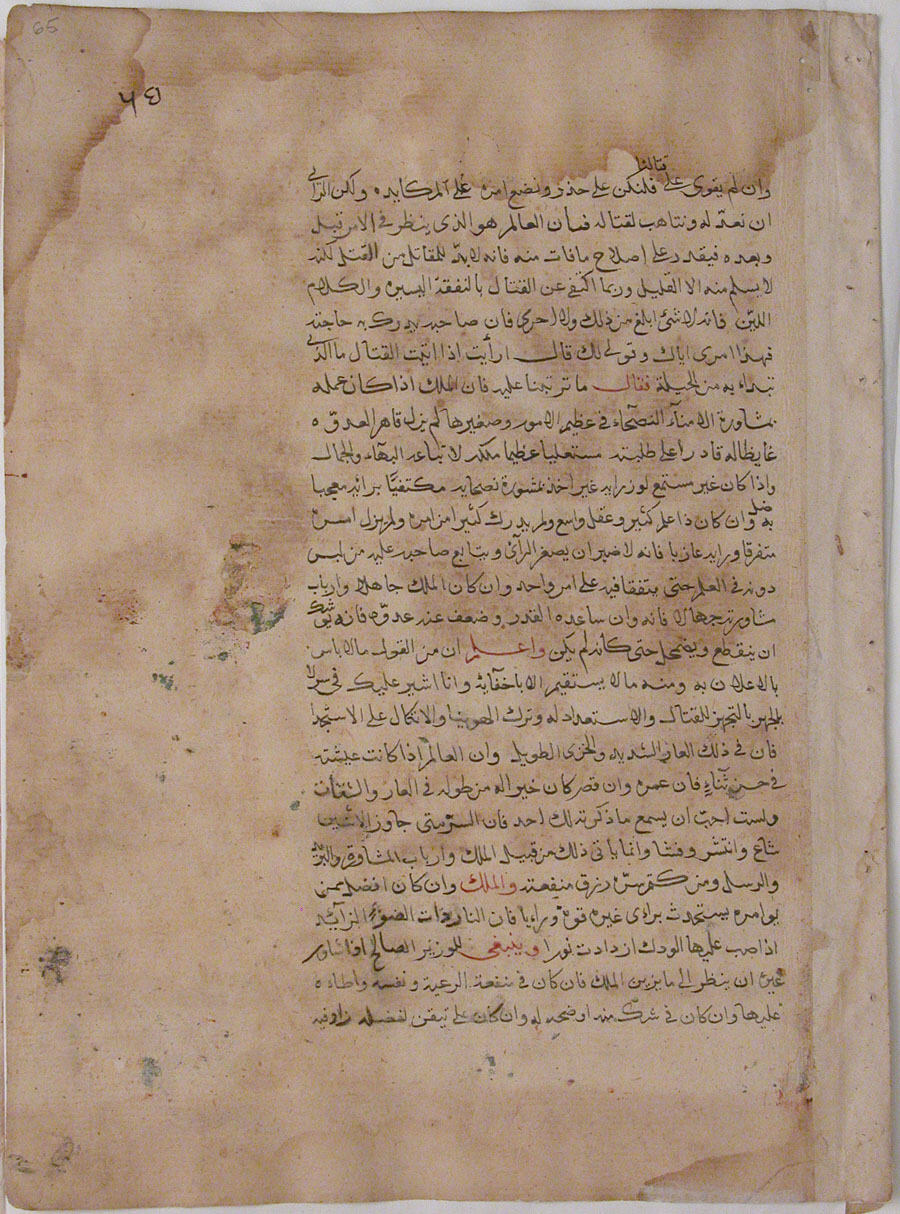 65
قتالنا
وان لم يقوى على فلنكن على حذر ونضع امره على المكايده ولكن الراى
ان نعد له ونتاهب لقتاله فان العالم هو الذى ينظر فى الامر قبل
وبعده فيقدر على اصلاح مافات منه فانه لا بد للمقاتل من القتل لكنه
لا يسلم منه الا القليل وربما اكتفى عن القتال بالنفقة اليسيره والكلام
اللين فانه لا شئ ابلغ من ذلك ولا احرى فان صاحبه يدرك به حاجته
فهذا امرى اياك وقولى لك قال ارأيت اذا اتيت القتال ما الذى
تبداء به من الحيلة فقال ما ترتبنا عليه فان الملك اذا كان عمله
بمشاورة الامنآء النصحآء فى عظيم الامور وصغيرها لم يزل قاهر العدوه
غايظا له قادرا على طلبته مستعليا عظيما ملكه لاتباعه البهآء والجمال
واذا كان غير مستمع لوزرايه غير اخذ بمشورة نصحايه مكتفيا برائه معجبا
به وان كان ذا علم كثير وعقل واسع ولم يدرك كثير امن امره ولم يزل امره
متفرقا ورايه عازبا فانه لا ضير ان يصغر الرآى ويتابع صاحبه عليه من ليس
دونه فى العلم حتى يتفقا فيه على امر واحد وان كان الملك جاهلا وارباب
مشاورته جهالا فانه وان ساعده القدر وضعف عنه عدوه فانه يوشك
ان ينقطع ويضمحل حتى كانه لم يكن واعلم ان من القول مالا باس
بالاعلان به ومنه مالا يستقيم الا باخفآئه وانا اشير عليك فى سر لا
بالجهر بالتجهز للقتال والاستعداد له وترك الهوينا والاتكال على
فان فى ذلك العار الشديد والخزى الطويل وان العالم اذا كانت عيشته
فى حسن ثنآء فان عمره وان قصر كان خيرا له من طوله فى العار
ولست احب ان يسمع ما ذكرته لك احد فان السر متى جاوز الاثنين
شاع وانتشر وفشا وانما ياتى ذلك من قبل الملك وارباب المشاوره
والرسل ومن كتم سره رزق منفعته والملك وان كان افضل ممن
يوامره يستحدث براى غيره قوة ورايا فان النار ذات الضوء الزائد
اذا صب عليها الودك ازدادت نورا وينبغى للوزير الصالح اذا شاور
غيره ان ينظر الى ما يزين الملك فان كان فى منفعة الرعية ونفسه واطاه
عليها وان كان فى شك منه اوضحه له وان كان على تيقن لفضله زاد فيه